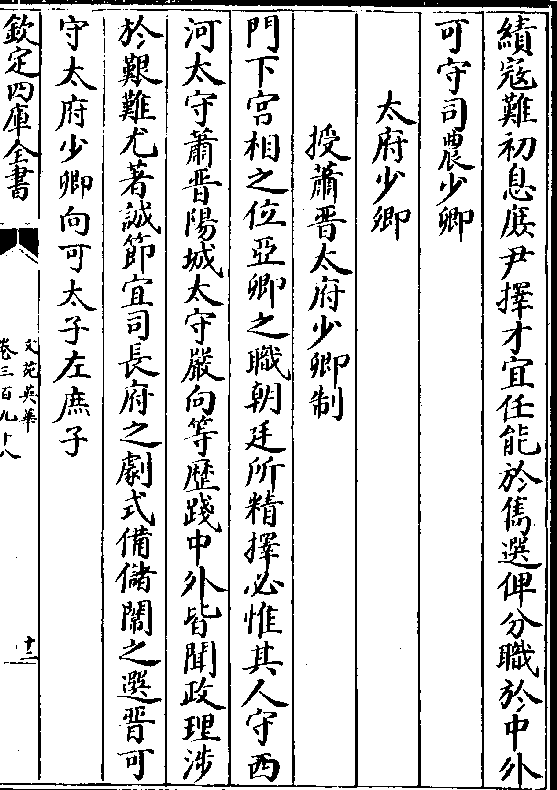 績寇難初息廐尹擇才宜任能於雋選俾分職於中外
可守司農少卿
太府少卿
授蕭晉太府少卿制
門下宮相之位亞卿之職朝廷所精擇必惟其人守西
河太守蕭晉陽城太守嚴向等歴踐中外皆聞政理涉
於艱難尤著誠節宜司長府之劇式備儲闈之選晉可
守太府少卿向可太子左庶子
欽定四庫全書
文苑英華
卷三百九十八
十三